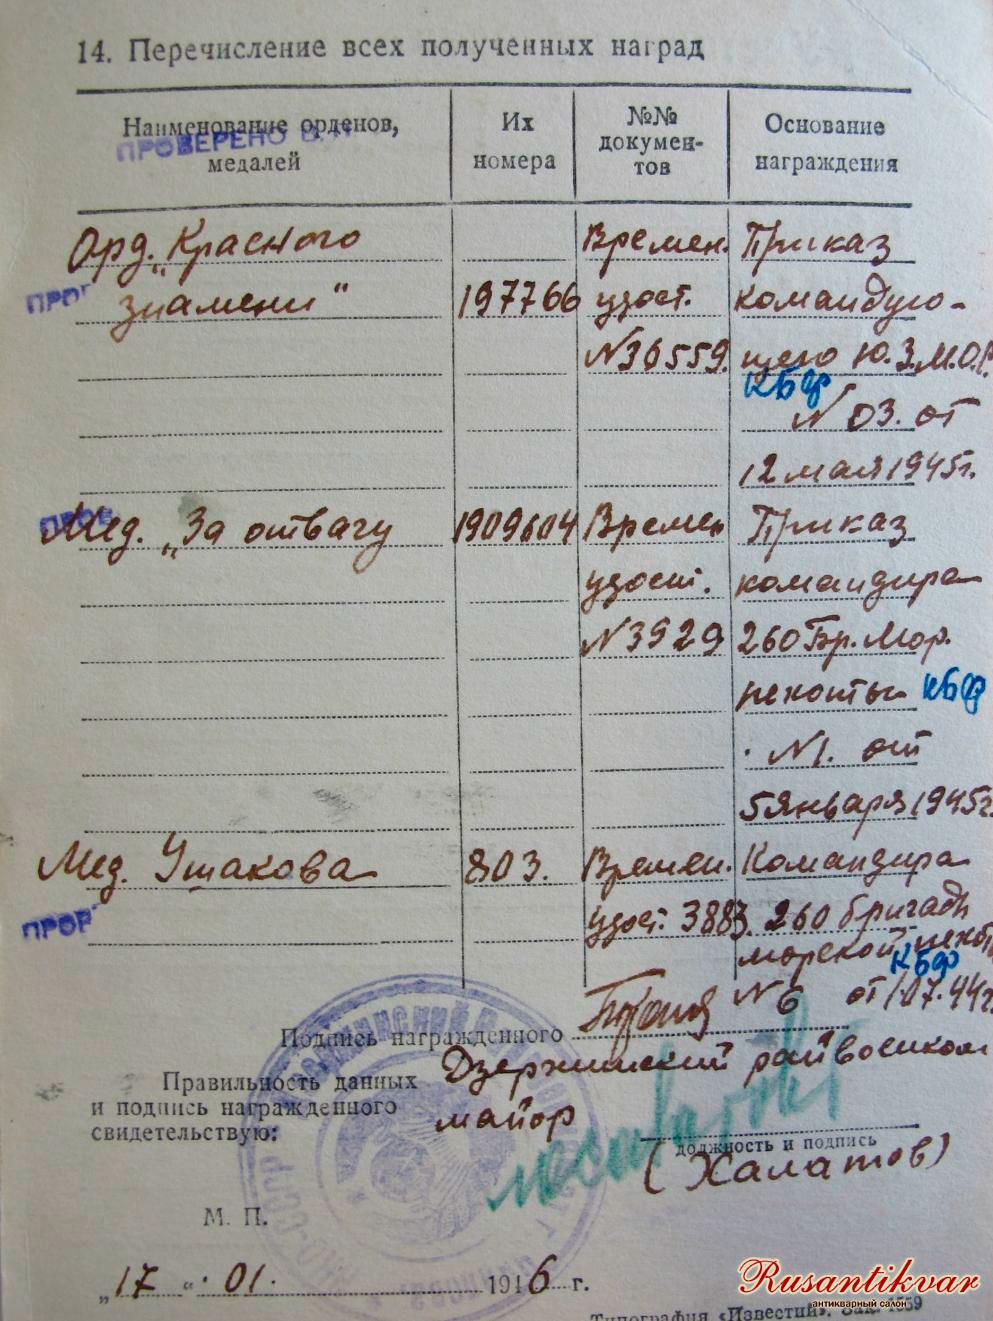 14. Перечисление всех полученных наград
Наименование орденов, медалей
Их номера
№№ докумен-
тов
Основание награждения
ПРОВЕРЕНО
Орд. „Красного Времен. Приказ
ПРОВ
знамени" 197766 удост. командую-
N36559. щего Ю.З.М.О.Р.
КБФ
N 03. от
12 мая 1945г.
ПРОВ
Мед. „За отвагу 1909604 Времен Приказ
удост. командира
N3929 260 Бр. Мор.
пехоты КБФ
N1. от
5 января 1945г.
Мед. Ушакова 803. Времен. Командира
ПРОВ
удост. 3883. 260 бригады
морской пехот
КБФ
N 6 от 1.07.44г.
Подпись награжденного
Дзержинский райвоенком
Правильность данных
и подпись награжденного
свидетельствую:
майор
должность и подпись
(Халатов)
М. П.
„17 " . 01. 1946 г.
Типография «Известий». Зак. 1559
Rusantikvar
антикварный салон